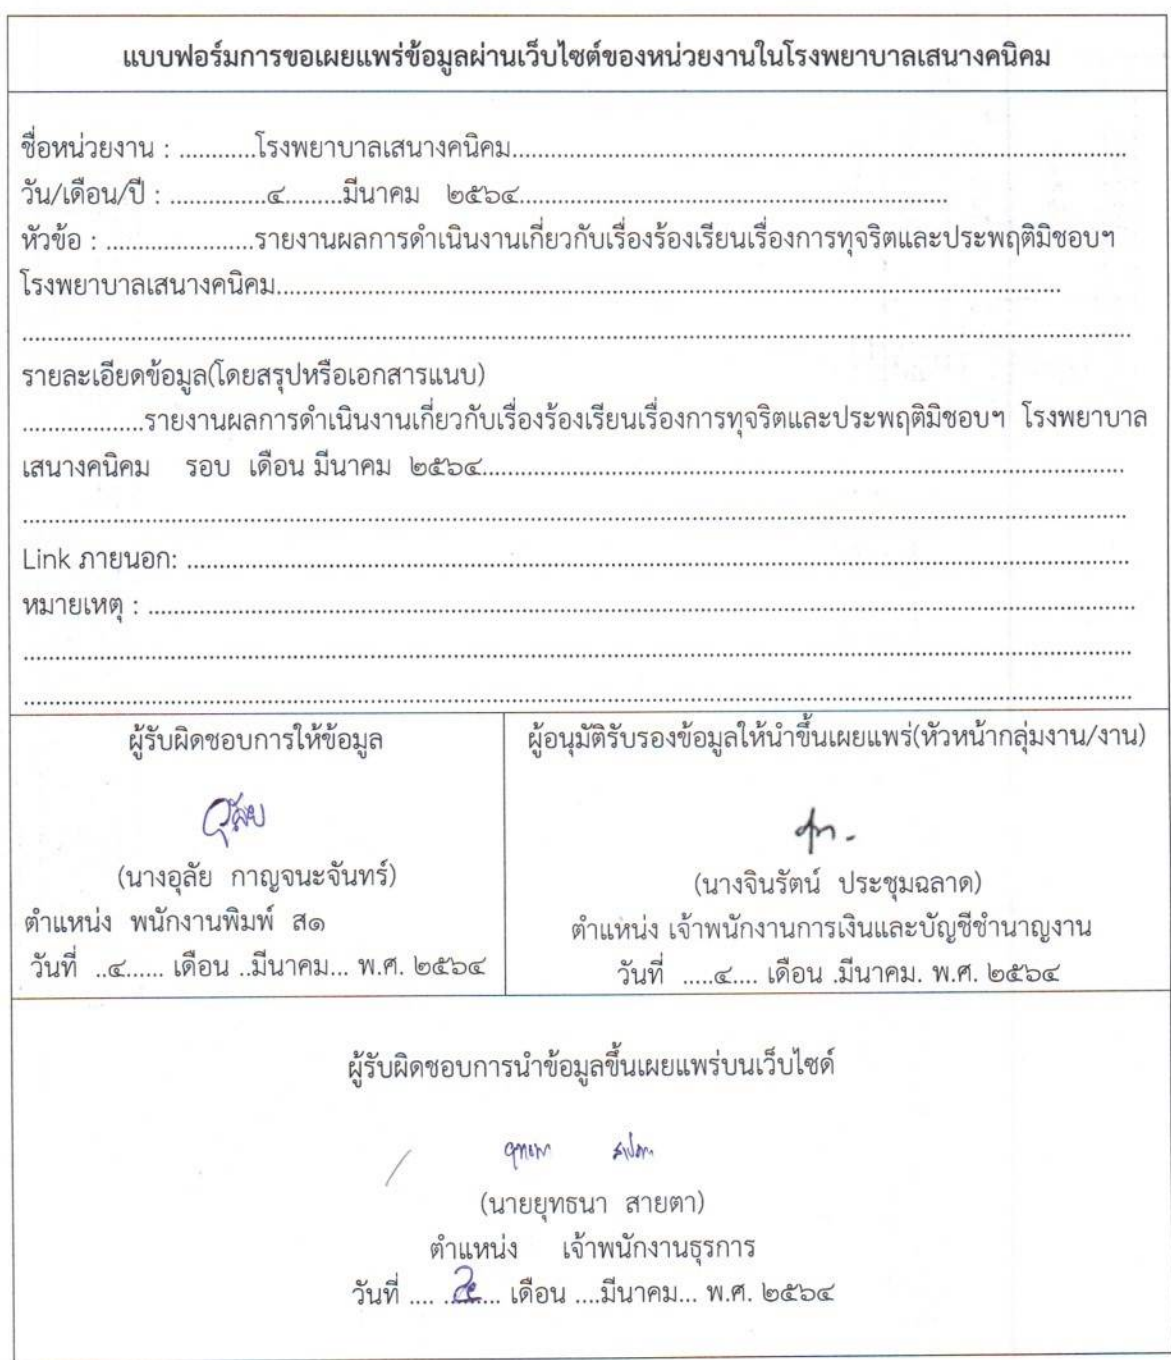 แบบฟอร์มการขอเผยแพร่ข้อมูลผ่านเว็บไซต์ของหน่วยงานในโรงพยาบาลเสนางคนิคม
ชื่อหน่วยงาน : ............โรงพยาบาลเสนางคนิคม....................................................
วัน/เดือน/ปี : ...............๔.........มีนาคม ๒๕๖๔....................................................
หัวข้อ : .......................รายงานผลการดำเนินงานเกี่ยวกับเรื่องร้องเรียนเรื่องการทุจริตและประพฤติมิชอบฯ
โรงพยาบาลเสนางคนิคม....................................................
รายละเอียดข้อมูล(โดยสรุปหรือเอกสารแนบ)
...................รายงานผลการดำเนินงานเกี่ยวกับเรื่องร้องเรียนเรื่องการทุจริตและประพฤติมิชอบฯ โรงพยาบาล
เสนางคนิคม รอบ เดือน มีนาคม ๒๕๖๔....................................................
Link ภายนอก: ....................................................
หมายเหตุ : ....................................................
ผู้รับผิดชอบการให้ข้อมูล
อุลัย
(นางอุลัย กาญจนะจันทร์)
ตำแหน่ง พนักงานพิมพ์ ส๑
วันที่ ..๔...... เดือน ..มีนาคม... พ.ศ. ๒๕๖๔
ผู้อนุมัติรับรองข้อมูลให้นำขึ้นเผยแพร่(หัวหน้ากลุ่มงาน/งาน)
(นางจินรัตน์ ประชุมฉลาด)
ตำแหน่ง เจ้าพนักงานการเงินและบัญชีชำนาญงาน
วันที่ .....๔.... เดือน .มีนาคม. พ.ศ. ๒๕๖๔
ผู้รับผิดชอบการนำข้อมูลขึ้นเผยแพร่บนเว็บไซด์
(นายยุทธนา สายตา)
ตำแหน่ง เจ้าพนักงานธุรการ
วันที่ .... ........ เดือน ....มีนาคม... พ.ศ. ๒๕๖๔